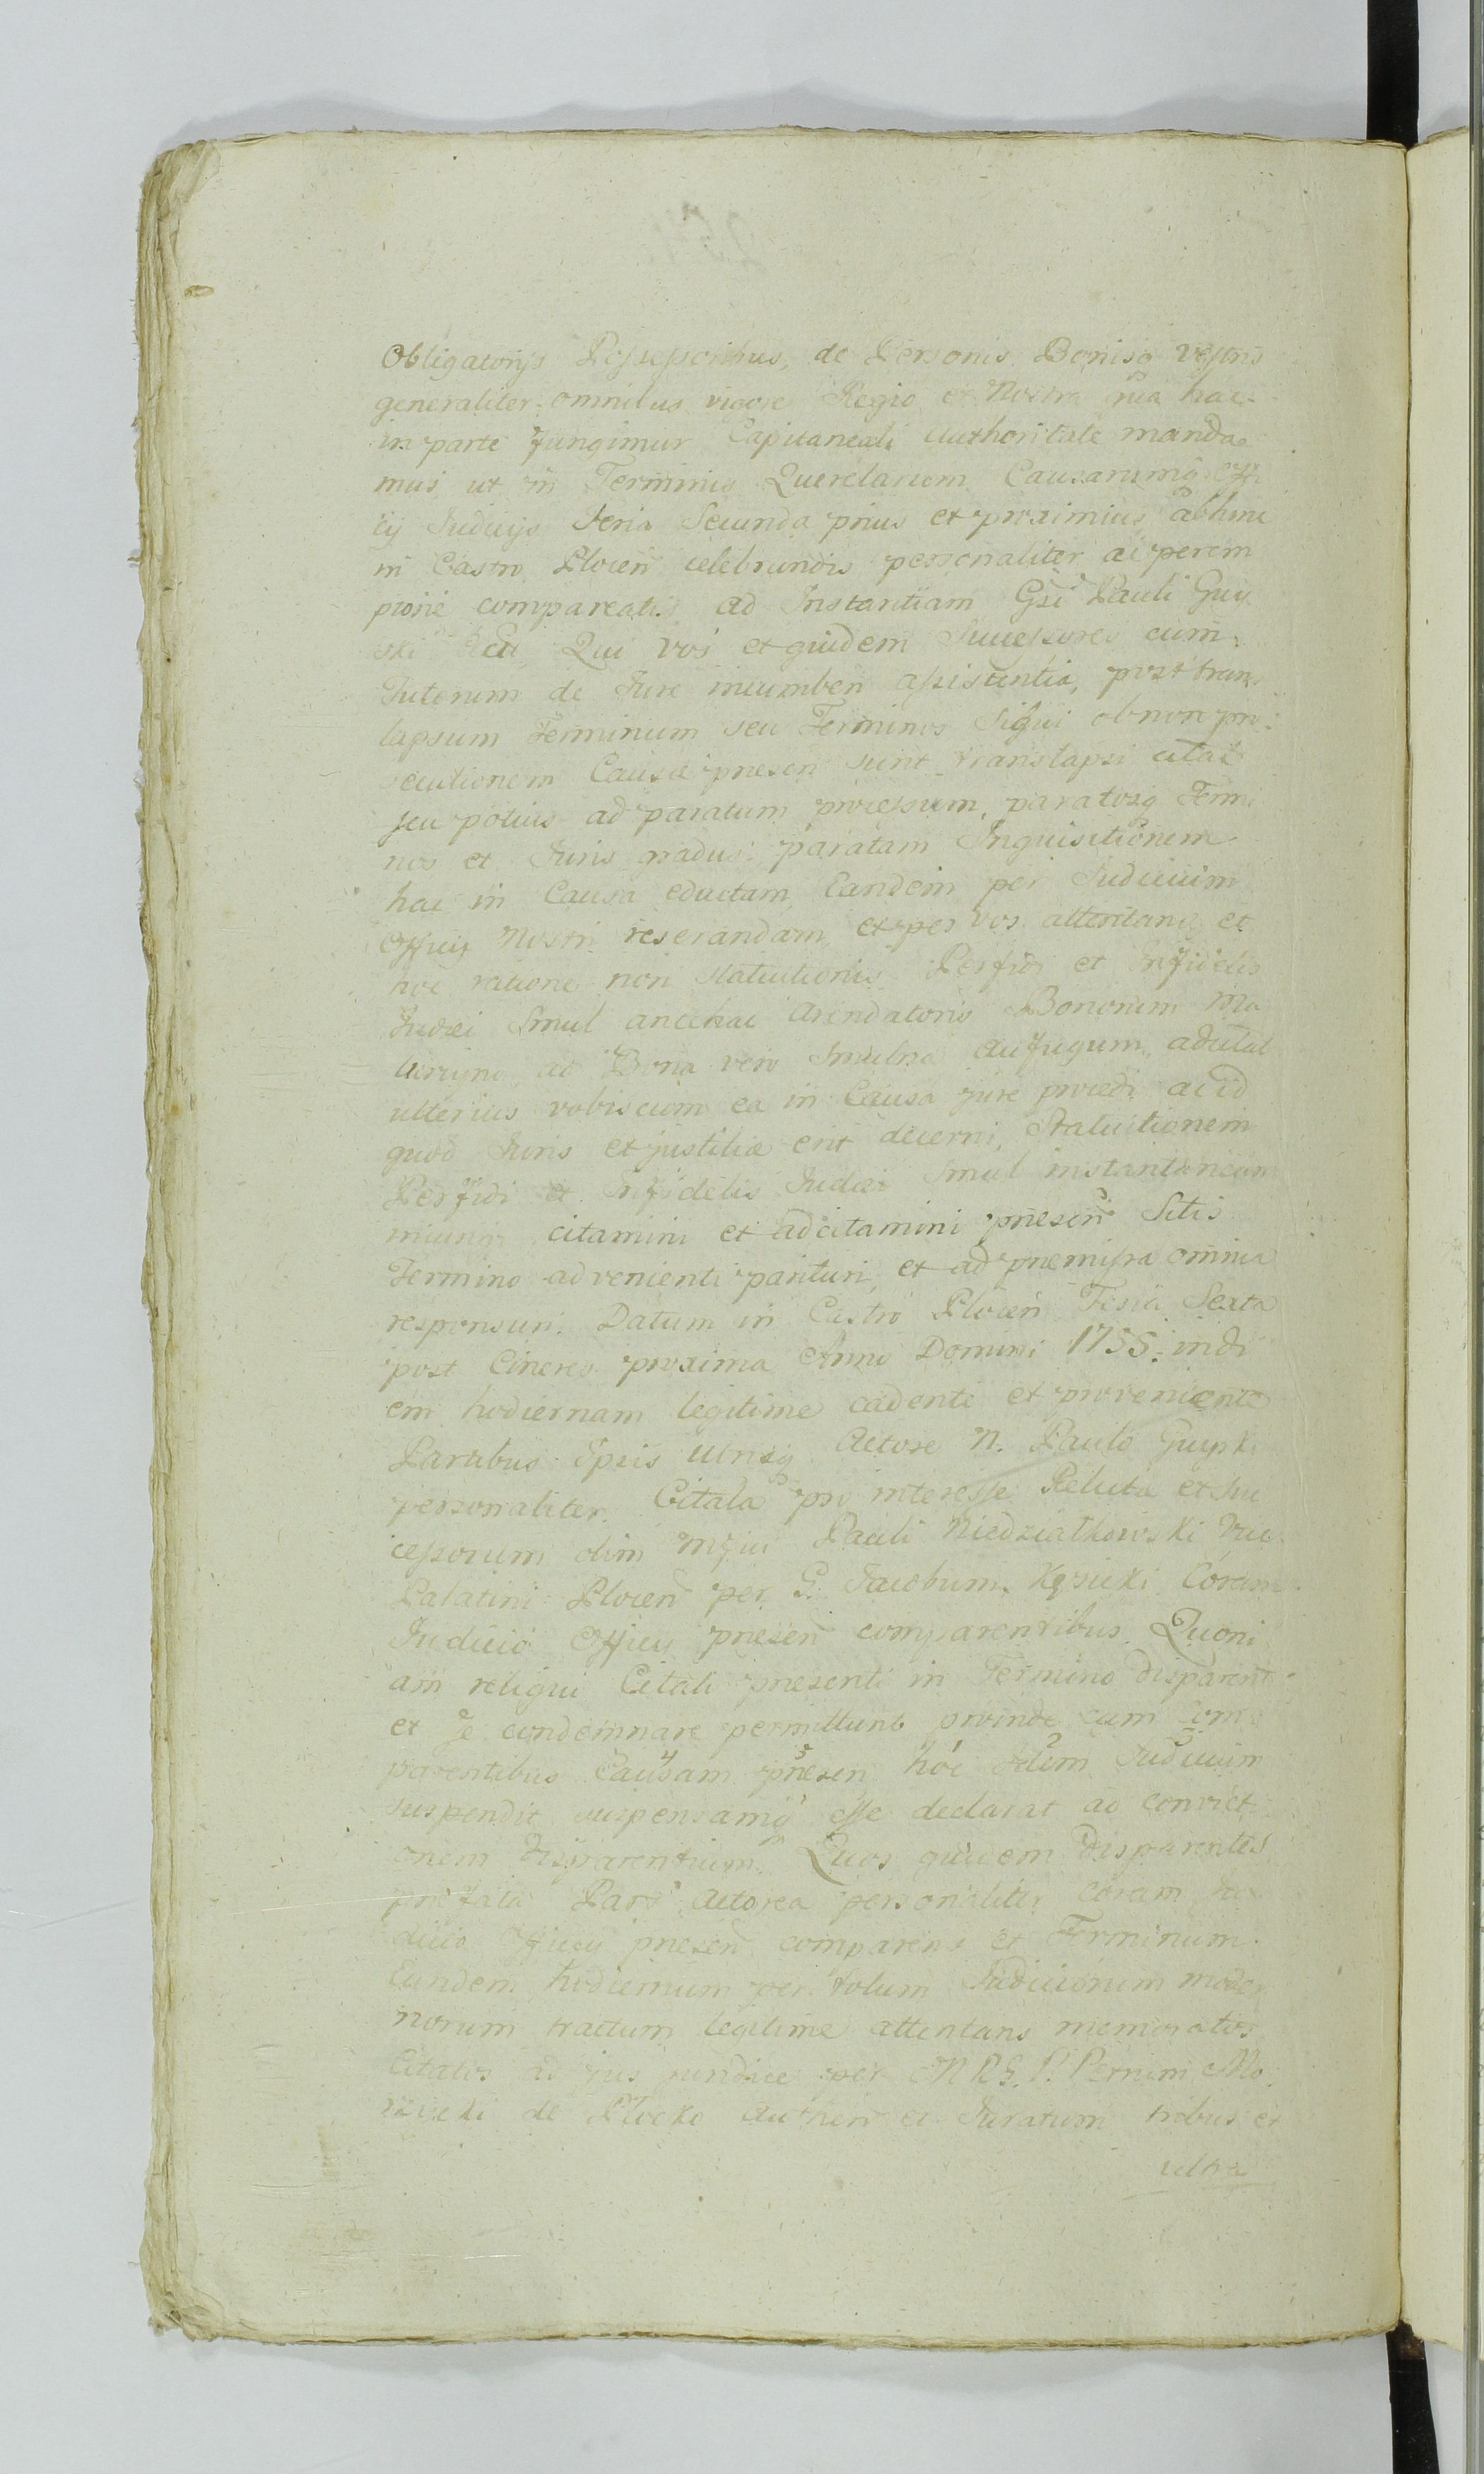 Obligatorijs Possessoribus, de Personis Bonisq vestris
generaliter omnibus vigore Regia et Nostra qua hac
in parte fungimur Capitaneali Authoritate manda
mus ut in Terminis Querelarum Causarumq Offi
cij Judicijs Feria Secunda prius et proximius abhinc
in Castro Plocen celebrandis personaliter ac perem
ptorie compareatis ad Instantiam Gsi Pauli
ski Qui vos et quidem Successores cum
Tutorum de Jure incumben assistentia, post trans
lapsum Terminum seu Terminos Siqui ob non pro
secutionem Causæ presen sunt translapsi citat
seu potius ad paratum processum, paratosq Termi
nos et Juris gradus paratam Inquisitionem
hac in Causa eductam Eandem per Judicium
Officij Nostri reserandam et per vos attentan et
hoc ratione non statuitionis Perfidi et Infidelis
Judæi Smul antehac Arendatoris Bonorum
ac Bona vero aufugum, adcitat
ulterius vobiscum ea in Causa jure procedi ac id
quod Juris et justitiæ erit decerni, Statuitionem
Perfidi et Infidelis Judæi Smul instantaneam
injung citamini et adcitamini presen Sitis
Termino advenienti parituri, et ad premissa omnia
responsuri. Datum in Castro Plocen Feria Sexta
post Cineres proxima Anno Domini 1755. in di
em hodiernam legitime cadente et proveniente
Partibus Ipsis utrisq Actore N. Paulo
personaliter. Citata pro interesse Relicta et Suc
cessorum olim Mgfici Pauli Niedziałkowski Vice
Palatini Plocen per G. Jacobum Kęsicki Coram
Judicio Officij presen comparentibus. Quoni
am reliqui Citati presenti in Termino disparent
et se condemnare permittunt proinde cum com
parentibus Causam presen hoc Idem Judicium
suspendit suspensamq esse declarat ad convicti
onem disparentium. Quos quidem disparentes
prefata Pars Actorea personaliter coram Ju
dicio Officij presen comparens et Terminum
Eundem hodiernum per totum Judiciorum moder
norum tractum legitime attentans memoratos
Citatos ad jus per Petrum Mo
rzycki de Plocko authen et Juratum tribus et
ultra